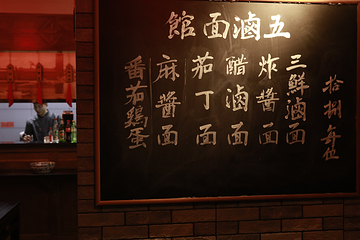 五滷面館
三鮮滷面
炸醬面
醋滷面
茄丁面
麻醬面
番茄鷄蛋
拾捌每位